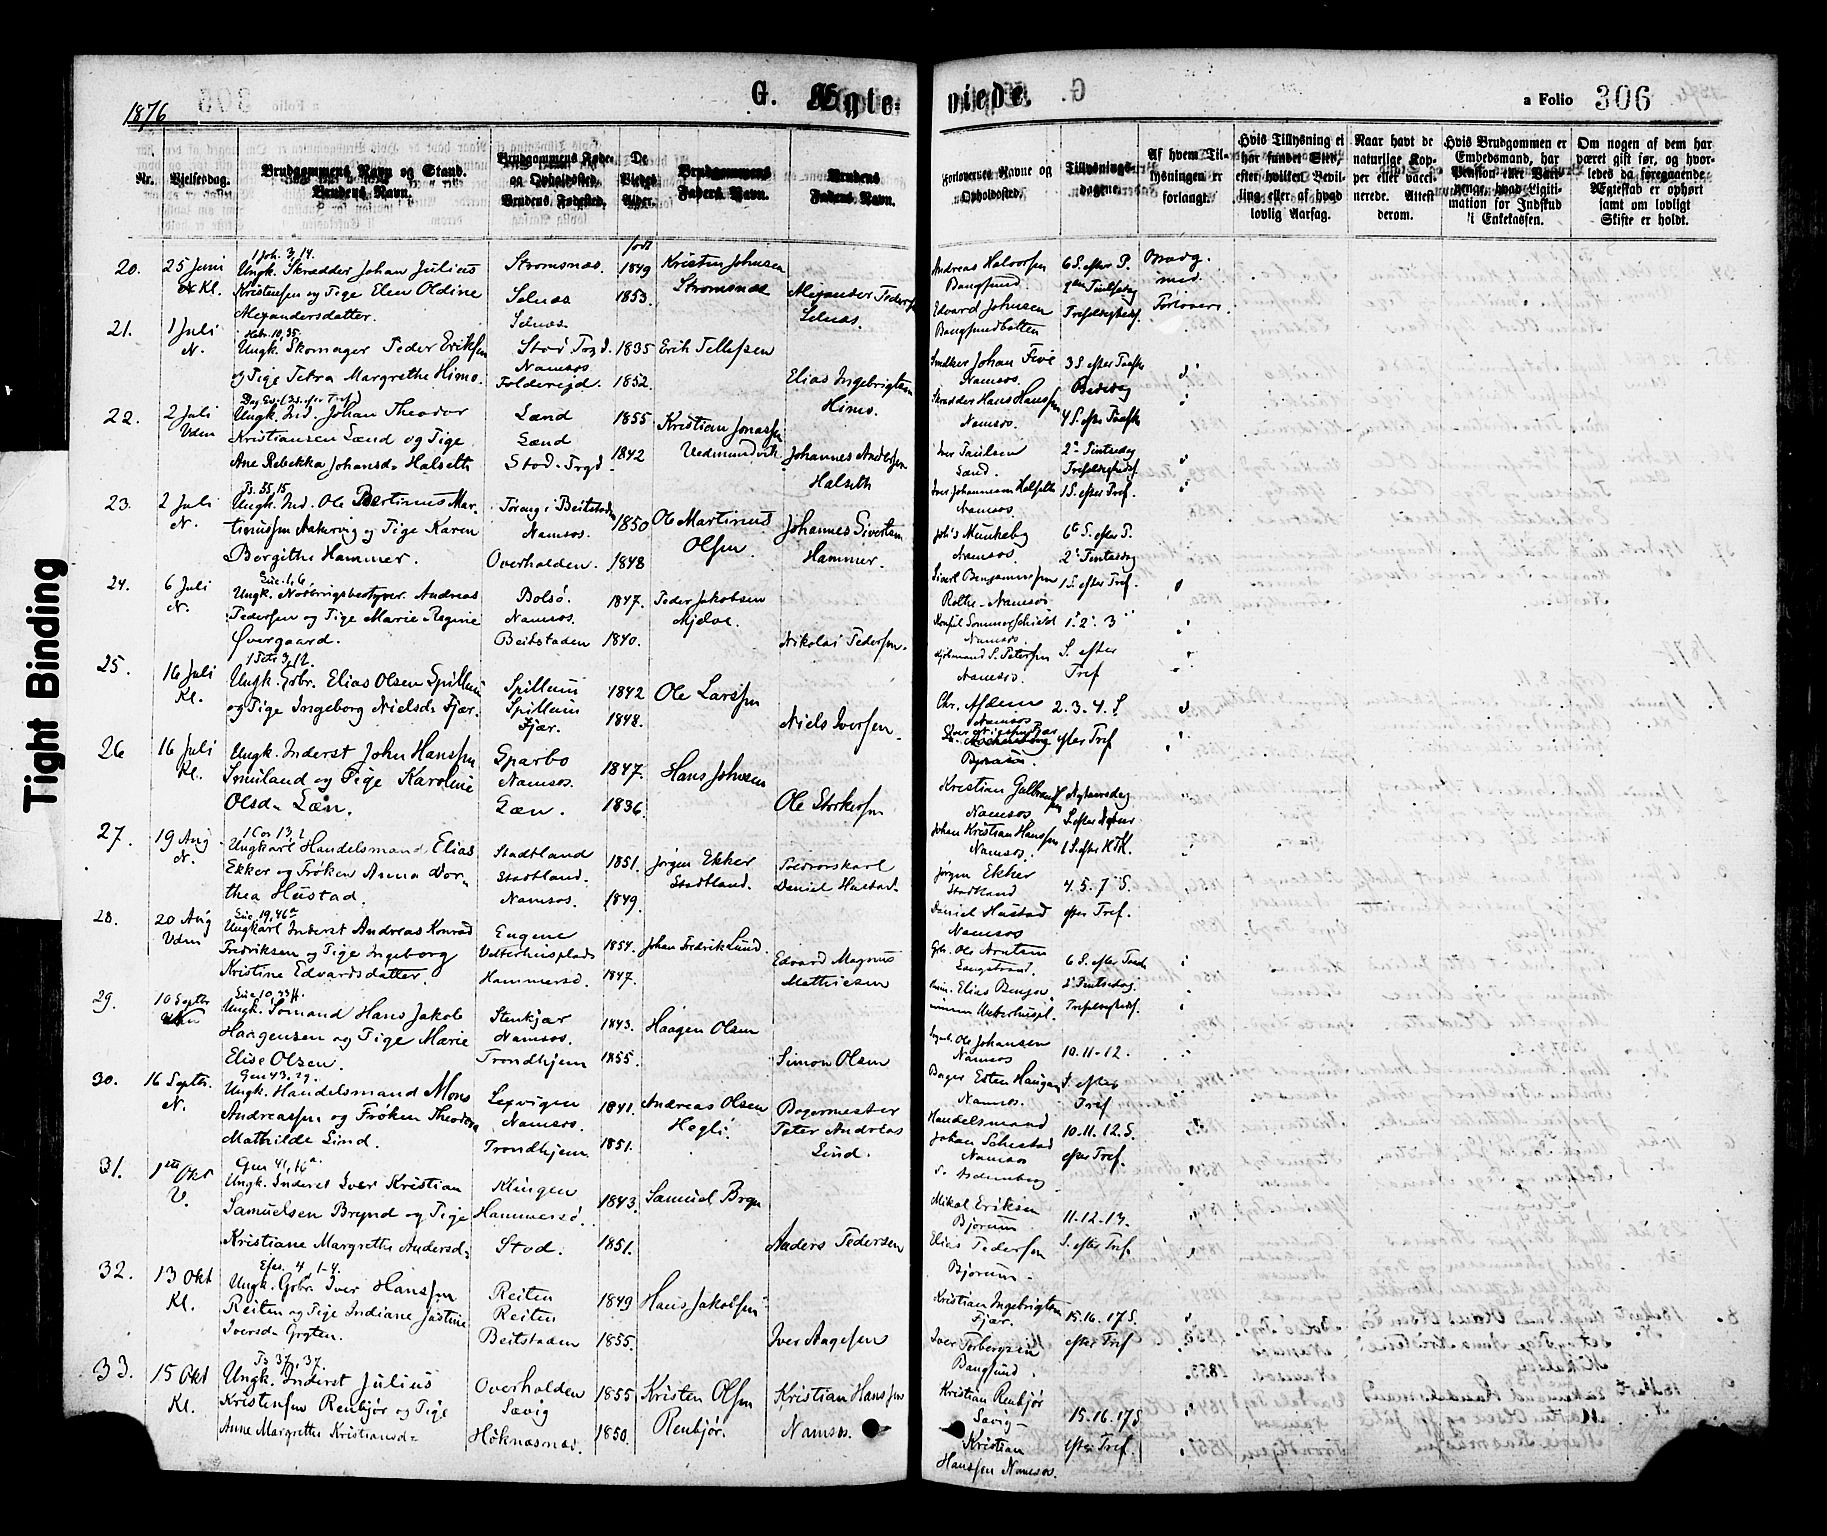 1876
G. Ægte-
viede.
a Folio 306
Nr.
Vielsesdag.
Brudgommens Navn og Stand.
Brudens Navn.
Brudgommens Føde-
og Opholdssted.
Brudens Fødested.
De
Viedes
Alder.
Brudgommens
Faders Navn.
Brudens
Faders Navn.
Forlovernes Navne og
Opholdssted.
Tillysnings-
dagene.
Af hvem Til-
lysningen er
forlangt.
Hvis Tillysning ei
har fundet Sted,
efter hvilken Bevil-
ling eller af hvad
lovlig Aarsag.
Naar havt de
naturlige Kop-
per eller vacci-
nerede. Attest
derom.
Hvis Brudgommen er
Embedsmand, har
Pension eller Vart-
penge, hvad Legiti-
mation for Indskud
i Enkekassen.
Om nogen af dem har
været gift før, og hvor-
ledes da foregaaende
Ægteskab er ophørt
samt om lovligt
Skifte er holdt.
20.
25 Juni
Kl.
1 Joh. 3, 14.
Ungk. Skrædder Johan Julius
Kristensen og Pige Elen Oldine
Alexandersdatter.
Stromsnæs.
Selnæs
Selnæs
født
1849
1853.
Kristen Johnsen
Stromsnæs
Alexander Peders
Selnæs.
Andreas Halvorsen
Bangsund.
Edvard Johnsen
Bangsundbotten
6 S. efter P.
2den Pintsedag
Trefoldighedsf.
Forlovere.
21.
1 Juli
N.
Hebr. 10, 35.
Ungk. Skomager Peder Eriksen
og Pige Petra Margrethe Himo.
Stod Pgd.
Namsos
Foldereid.
1835
1852.
Erik Pellesen
Elias Ingebrigtsen
Himo.
Snedker Johan Five
Namsos.
Skrædder Hans Hanssen
Namsos.
3 S. efter Paaske
Bededag
4 S. efter Paaske
22.
2 Juli
Vdm
Ungk. Ind. Johan Theodor
Kristiansen Lænd og Pige
Ane Rebekka Johansd. Halseth
Lænd
Lænd
Stod. Prgd.
1855
1842
Kristian Jonassen
Vedmundvik
Johannes Andersen
Halseth
Iver Paulsen
Lænd.
Iver Johannessen Halseth
Namsos.
2. Pintsedag
Trefoldighedsf.
1 S. efter Tref.
23.
2 Juli
N.
Ps. 55, 15.
Ungk. Ind. Ole Bertinus Mar-
tinussen Aakervig og Pige Karen
Bergithe Hammer.
Toreng i Beitstaden
Namsos.
Overhalden.
1850
1848
Ole Martinus
Olsen
Johannes Sivertsen
Hammer.
Joh's Munkeby
Namsos
Sivert Benjaminsen
Rothe-Namsos
6te S. efter P.
2. Pintsedag
1 S. efter Tref.
24.
6 Juli
N.
Luc. 1, 6.
Andreas
Pedersen og Pige Marie Regine
Overgaard.
Bolsø.
Namsos.
Beitstaden
1847.
1840.
Peder Jakobsen
Mjelve.
Nikolai Pedersen.
Konsul Sommerschield
Namsos.
S. Petersen
Namsos.
1. 2. 3
S. efter
Tref
25.
16 Juli
Kl.
1 Petr. 3, 12.
Ungk. Gbr. Elias Olsen Spillum
og Pige Ingeborg Nielsd. Fjær.
Spillum
Spillum
Fjær.
1842
1848.
Ole Larssen
Niels Iversen.
Chr.
Namsos
2. 3. 4. S.
efter Tref
26
16 Juli
Kl.
Ungk. Inderst John Hanssen
Smiland og Pige Karoline
Olsd. Læn.
Sparbo
Namsos.
Læn.
1847.
1836.
Hans Johnsen
Ole Storkersen
Kristian Gulbrandsen
Namsos.
Johan Kristian Hanssen
Namsos.
Nytaarsdag
S. efter Nytaar
1 S. efter HTK.
27.
19 Aug.
N.
1 Cor 13, 2.
Ungkarl Handelsmand Elias
Ekker og Frøken Anna Dor-
thea Hustad.
Stadtland
Stadtland.
Namsos.
1851.
1849.
Jørgen Ekker
Stadtland.
Daniel Hustad.
Jørgen Ekker
Stadtland
Daniel Hustad
Namsos
4. 5. 7 S.
efter Tref.
28.
20 Aug
Vdm
Luc. 19, 46
Ungkarl Inderst Andreas Konrad
Fredriksen og Pige Ingeborg
Kristine Edvardsdatter.
Engene
Vetterhusplads
Hammersø.
1854.
1847.
Johan Fredrik Lund.
Edvard Magnus
Mathiesen
Gbr. Ole Arntsen
Langstrand.
6 S. efter Paaske
2. Pintsedag.
Trefoldighedsf.
29.
10 Septbr
Luc 10, 23 ff.
Ungk. Sømand Hans Jakob
Haagensen og Pige Marie
Elise Olsen.
Stenkjær
Namsos.
Trondhjem
1843.
1855.
Haagen Olsen
Simon Olsen
Ole Johansen
Namsos
Bager Esten Haugan
Namsos.
10. 11-12.
S. efter
Tref
30.
16 Septbr.
N.
Gen 43, 29.
Ungk. Handelsmand Mons
Andreassen og Frøken Theodora
Mathilde Lund.
Lexvigen
Namsos.
Trondhjem
1841.
1851.
Andreas Olsen
Hegli.
Bagermester
Peter Andreas
Lund.
Handelsmand
Johan Sehestad
Namsos
10. 11. 12. S.
efter Tref.
31.
1ste Okt
V.
Gen 41, 16
Ungk. Inderst Iver Kristian
Samuelsen Brynd og Pige
Kristiane Margrethe Andersd.
Klingen
Hammersø.
Stod.
1843.
1851.
Samuel Bryn
Anders Pedersen
Mikal Eriksen
Bjørum
Elias Pedersen
Bjørum.
11-12-13.
S. efter Tref.
32.
13 Okt
Kl.
Efes. 4, 1-4.
Ungk. Gbr. Iver Hanssen
Reiten og Pige Indiane Justine
Iversd. Grøten.
Reiten
Reiten
Beitstaden
1849
1855.
Hans Jakobsen
Iver Aagesen
Kristian Ingebrigtsen
Fjær.
Iver Torbergsen
Bangsund.
15. 16. 17 S.
efter Tref
33.
15 Okt
Kl.
Ps 37, 37.
Ungk. Inderst Julius
Kristensen Renbjør og Pige
Anne Margrethe Kristiansd.
Overhalden
Sævig
Høknæsnæs.
1855
1850.
Kristen Olsen
Renbjør.
Kristian Hanssen
Namsos.
Kristian Renbjør
Sævig
Kristian
Hanssen Namsos.
15. 16. 17 S
efter Tref.
Tight Binding